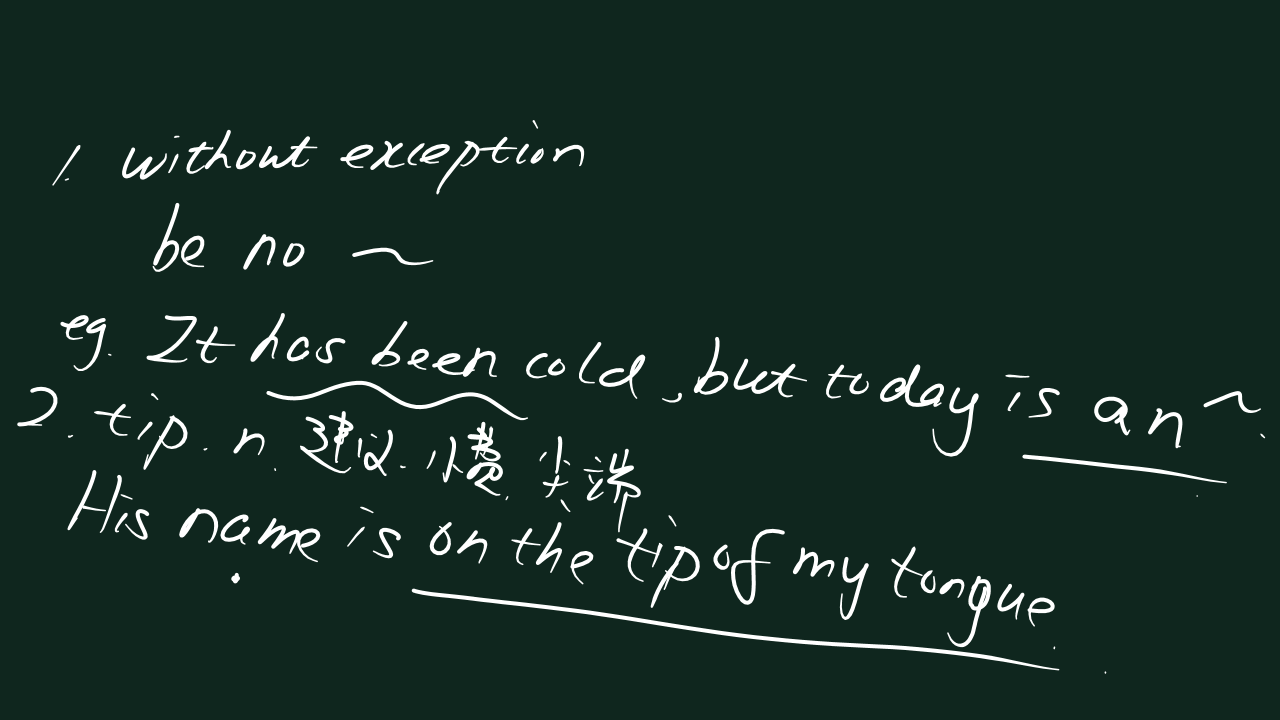 1. without exception
be no ~
eg. It has been cold, but today is an ~.
2. tip. n. 建议. 小费. 尖端
His name is on the tip of my tongue.